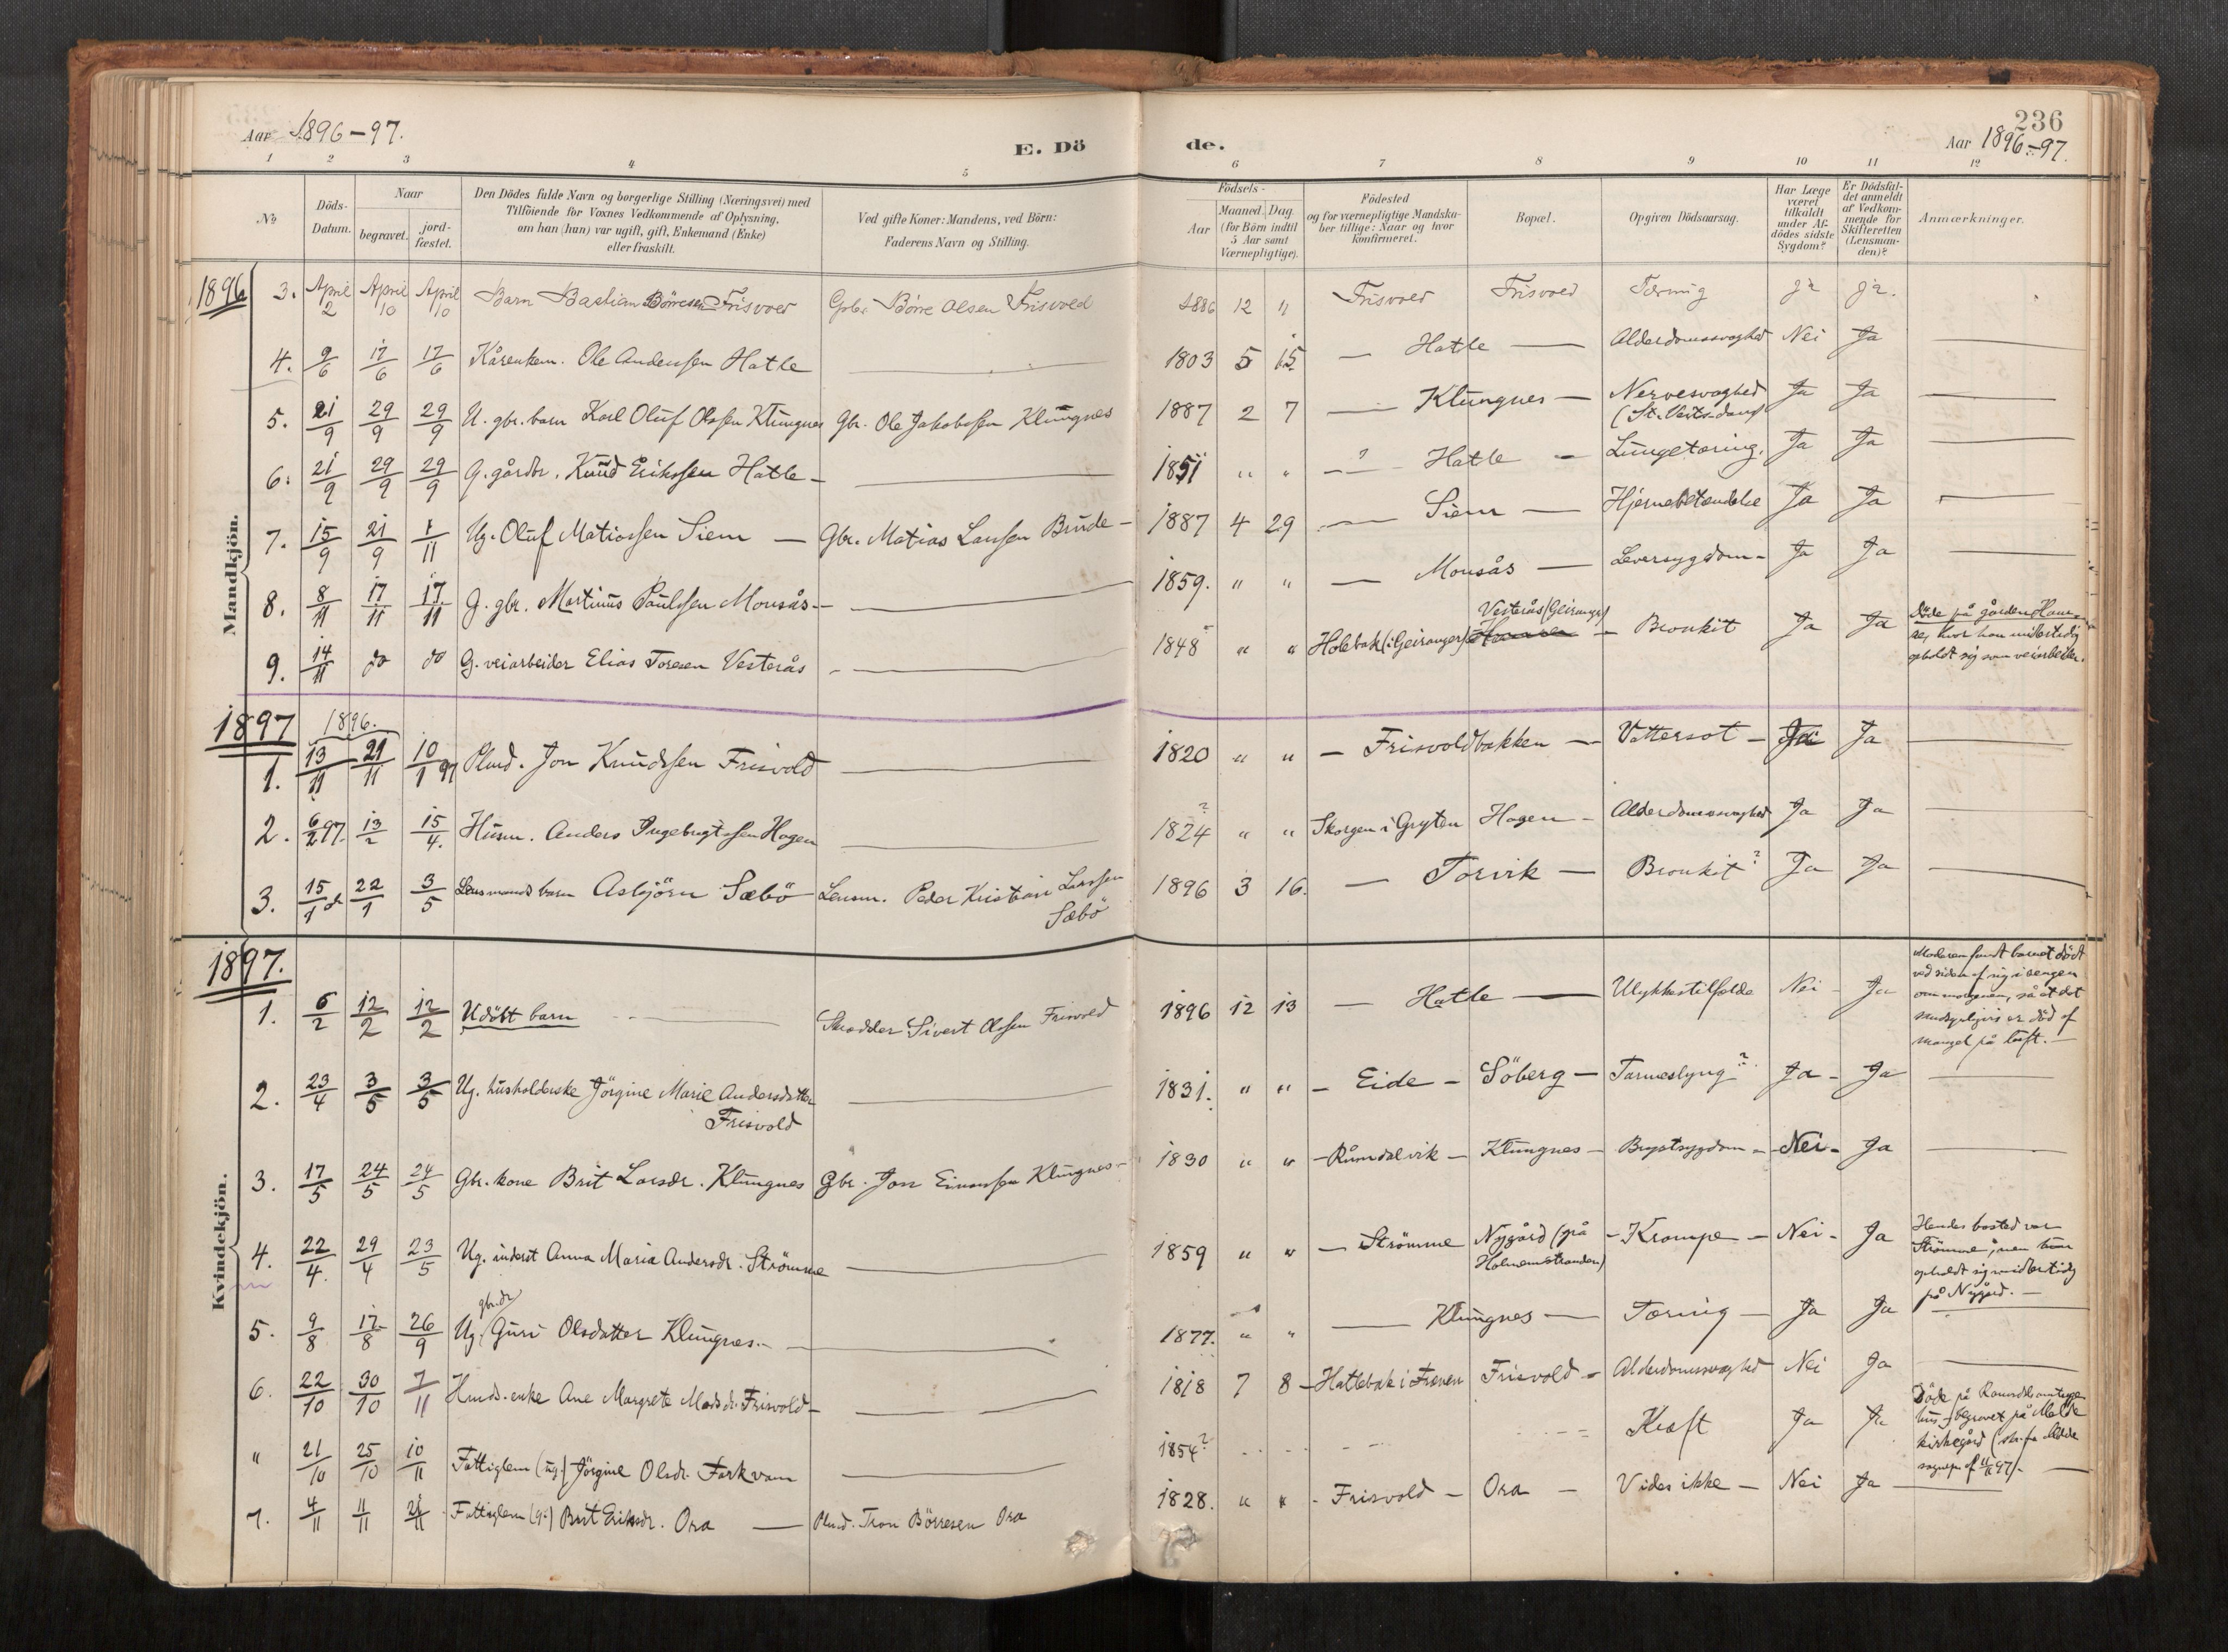 Aar 1896-97.
E. Dö
de.
236
Aar 1896-97.
1 2 3 4 5 6 7 8 9 10 11 12
No
Döds-Datum.
Naar
begravet.
jord-fæstet.
Den Dödes fulde Navn og borgerlige Stilling (Næringsvei) med
Tilföiende for Voxnes Vedkommende af Oplysning,
om han (hun) var ugift, gift, Enkemand (Enke)
eller fraskilt.
Ved gifte Koner: Mandens, ved Börn:
Faderens Navn og Stilling.
Födsels-
Aar
Maaned. Dag
(for Börn indtil
5 Aar samt
Værnepligtige).
Födested
og for værnepligtige Mandska-
ber tillige: Naar og hvor
konfirmeret.
Bopæl.
Opgiven Dödsaarsag.
Har Læge
været
tilkaldt
under Af-
dödes sidste
Sygdom?
Er Dödsfal-
det anmeldt
af Vedkom-
mende for
Skifteretten
(Lensman-
den)?
Anmærkninger.
Mandkjön.
1896 3. April 2 April 10 April 10 Barn Bastian Börresen Frisvoed Gbr. Börre Olsen Frisvoed 1886 12 11 Frisvoed Frisvoed Tæring ja ja.
4. 9/6 17/6 17/6 Kårenkem. Ole Anderssen Hatle — 1803 5 15 — Hatle — Alderdomssvaghed Nei Ja —
5. 21/9 29/9 29/9 U. gbr. barn Karl Oluf Olssen Klungnes Gbr. Ole Jakobssen Klungnes 1887 2 7 — Klungnes — Nervesvaghed Ja Ja —
(St. Veits-dans)
6. 21/9 29/9 29/9 G. gårdbr. Knud Erikssen Hatle — 1851 " " — ? Hatle — Lungetæring. Ja Ja —
7. 15/9 21/9 1/11 Ug. Oluf Matiassen Siem — Gbr. Matias Larssen Brude — 1887 4 29 — Siem — Hjernebetændelse Ja Ja —
8. 8/11 17/11 17/11 G. gbr. Martinus Paulssen Monsås — 1859. " " — Monsås — Leversygdom — Ja Ja —
9. 14/11 do do G. veiarbeider Elias Toresen Vesterås — 1848 " " Holebak (i Geiranger) Vesterås (Geiranger) — Bronkit Ja Ja Döde på gården
hvor han midlertidig
opholdt sig som veiarbeider.
1897
1896.
1. 13/11 21/11 10/1 97 Plmd. Jon Knudssen Frisvold — 1820 " " — Frisvoldbakken — Vattersot — Ja Ja —
2. 6/2 97. 13/2 15/4. Husm. Anders Ingebrigtssen Hagen — 1824 ? " " Skorgen i Gryten Hagen — Alderdomssvaghed Ja Ja —
3. 15/1 22/1 3/5 Lensmands barn Asbjörn Sæbö Lensm. Peder Kristian Larssen 1896 3 16. — Torvik — Bronkit? Ja Ja —
Sæbö
Kvindekjön.
1897.
1. 6/2 12/2 12/2 Udöbt barn — Skrædder Sivert Olssen Frisvold 1896 12 13 — Hatle — Ulykkestilfælde Nei — Ja Moderen fandt barnet dödt
ved siden af sig i sengen
om morgenen, så at det
sandsynligvis er död af
mangel på luft. —
2. 23/4 3/5 3/5 Ug. husholderske Jörgine Marie Andersdatter — 1831. " " — Eide — Söberg — Tarmeslyng? Ja — Ja —
Frisvold
3. 17/5 24/5 24/5 Gbr. kone Brit Larsdr. Klungnes Gbr. Jon Einarssen Klungnes — 1830 " " — Råmdalvik — Klungnes — Brystsygdom — Nei — Ja —
4. 22/4. 29/4 23/5 Ug. inderst Anna Maria Andersdr. Strömme — 1859 " " — Strömme Nygård (på — Krampe — Nei — Ja Hendes bosted var
Holmemstranden)
Strömme, men hun
opholdt sig midlertidig
på Nygård. —
5. 9/8 17/8 26/9 Ug. gbr. dr Guri Olsdatter Klungnes. — 1877. " " — Klungnes — Tæring — Ja Ja —
6. 22/10 30/10 7/11 Hmds. enke Ane Margrete Madsdr. Frisvold — 1818 7 8 — Hatlebak i Frænen Frisvold — Alderdomssvaghed Nei Ja —
" 21/10 25/10 10/11 Fattiglem (ug.) Jörgine Olsdr. Farkvam — 1854? Kræft Ja Ja Döde på Romsdals amtssyge
hus, begravet på Molde
kirkegård (
7. 4/11 11/11 21/11 Fattiglem (g.) Brit Eriksdr. Ora — Plmd. Tron Börresen Ora 1828. " " — Frisvold — Ora — Vides ikke — Nei Ja —